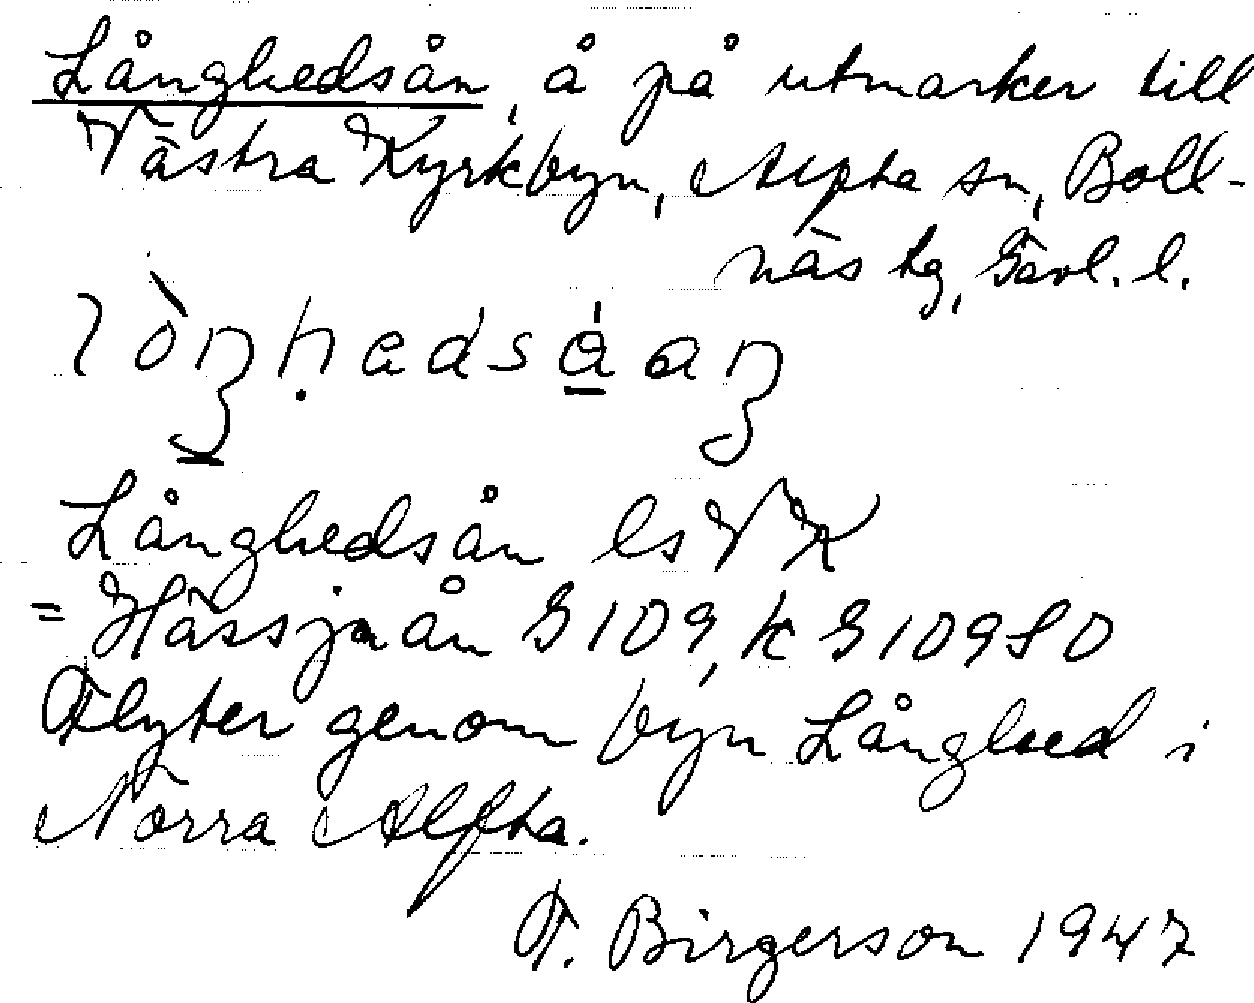 Långhedsån, å på utmarker till
Västra Kyrkbyn, Alfta sn, Boll-
näs tg, Gävl. l.
Långhedsån ls VK
= Hässjaån G 109, k G 109 SO
Flyter genom byn Långhed i
Norra Alfta.
F. Birgerson 1947